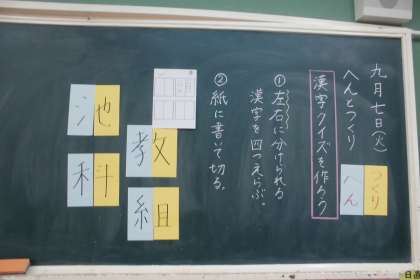 九月七日(火)
へんとつくり
へん
つくり
漢字クイズを作ろう
①左右に分けられる
漢字を四つえらぶ。
②紙に書いて切る。
教
組
池
科
日直